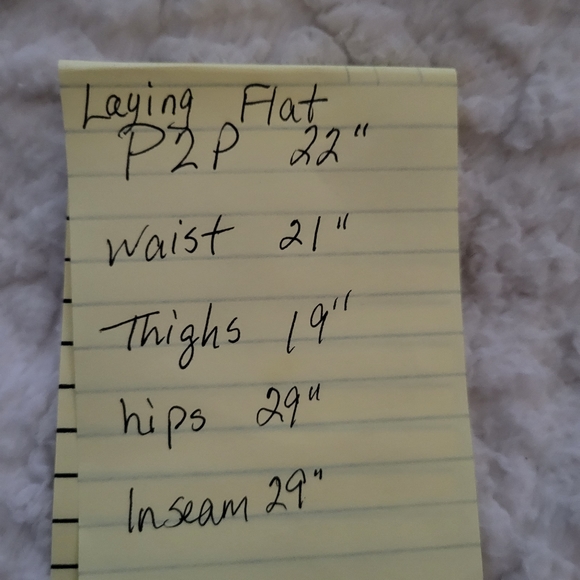 Laying Flat
P2P 22"
Waist 21"
Thighs 19"
hips 29"
Inseam 29"